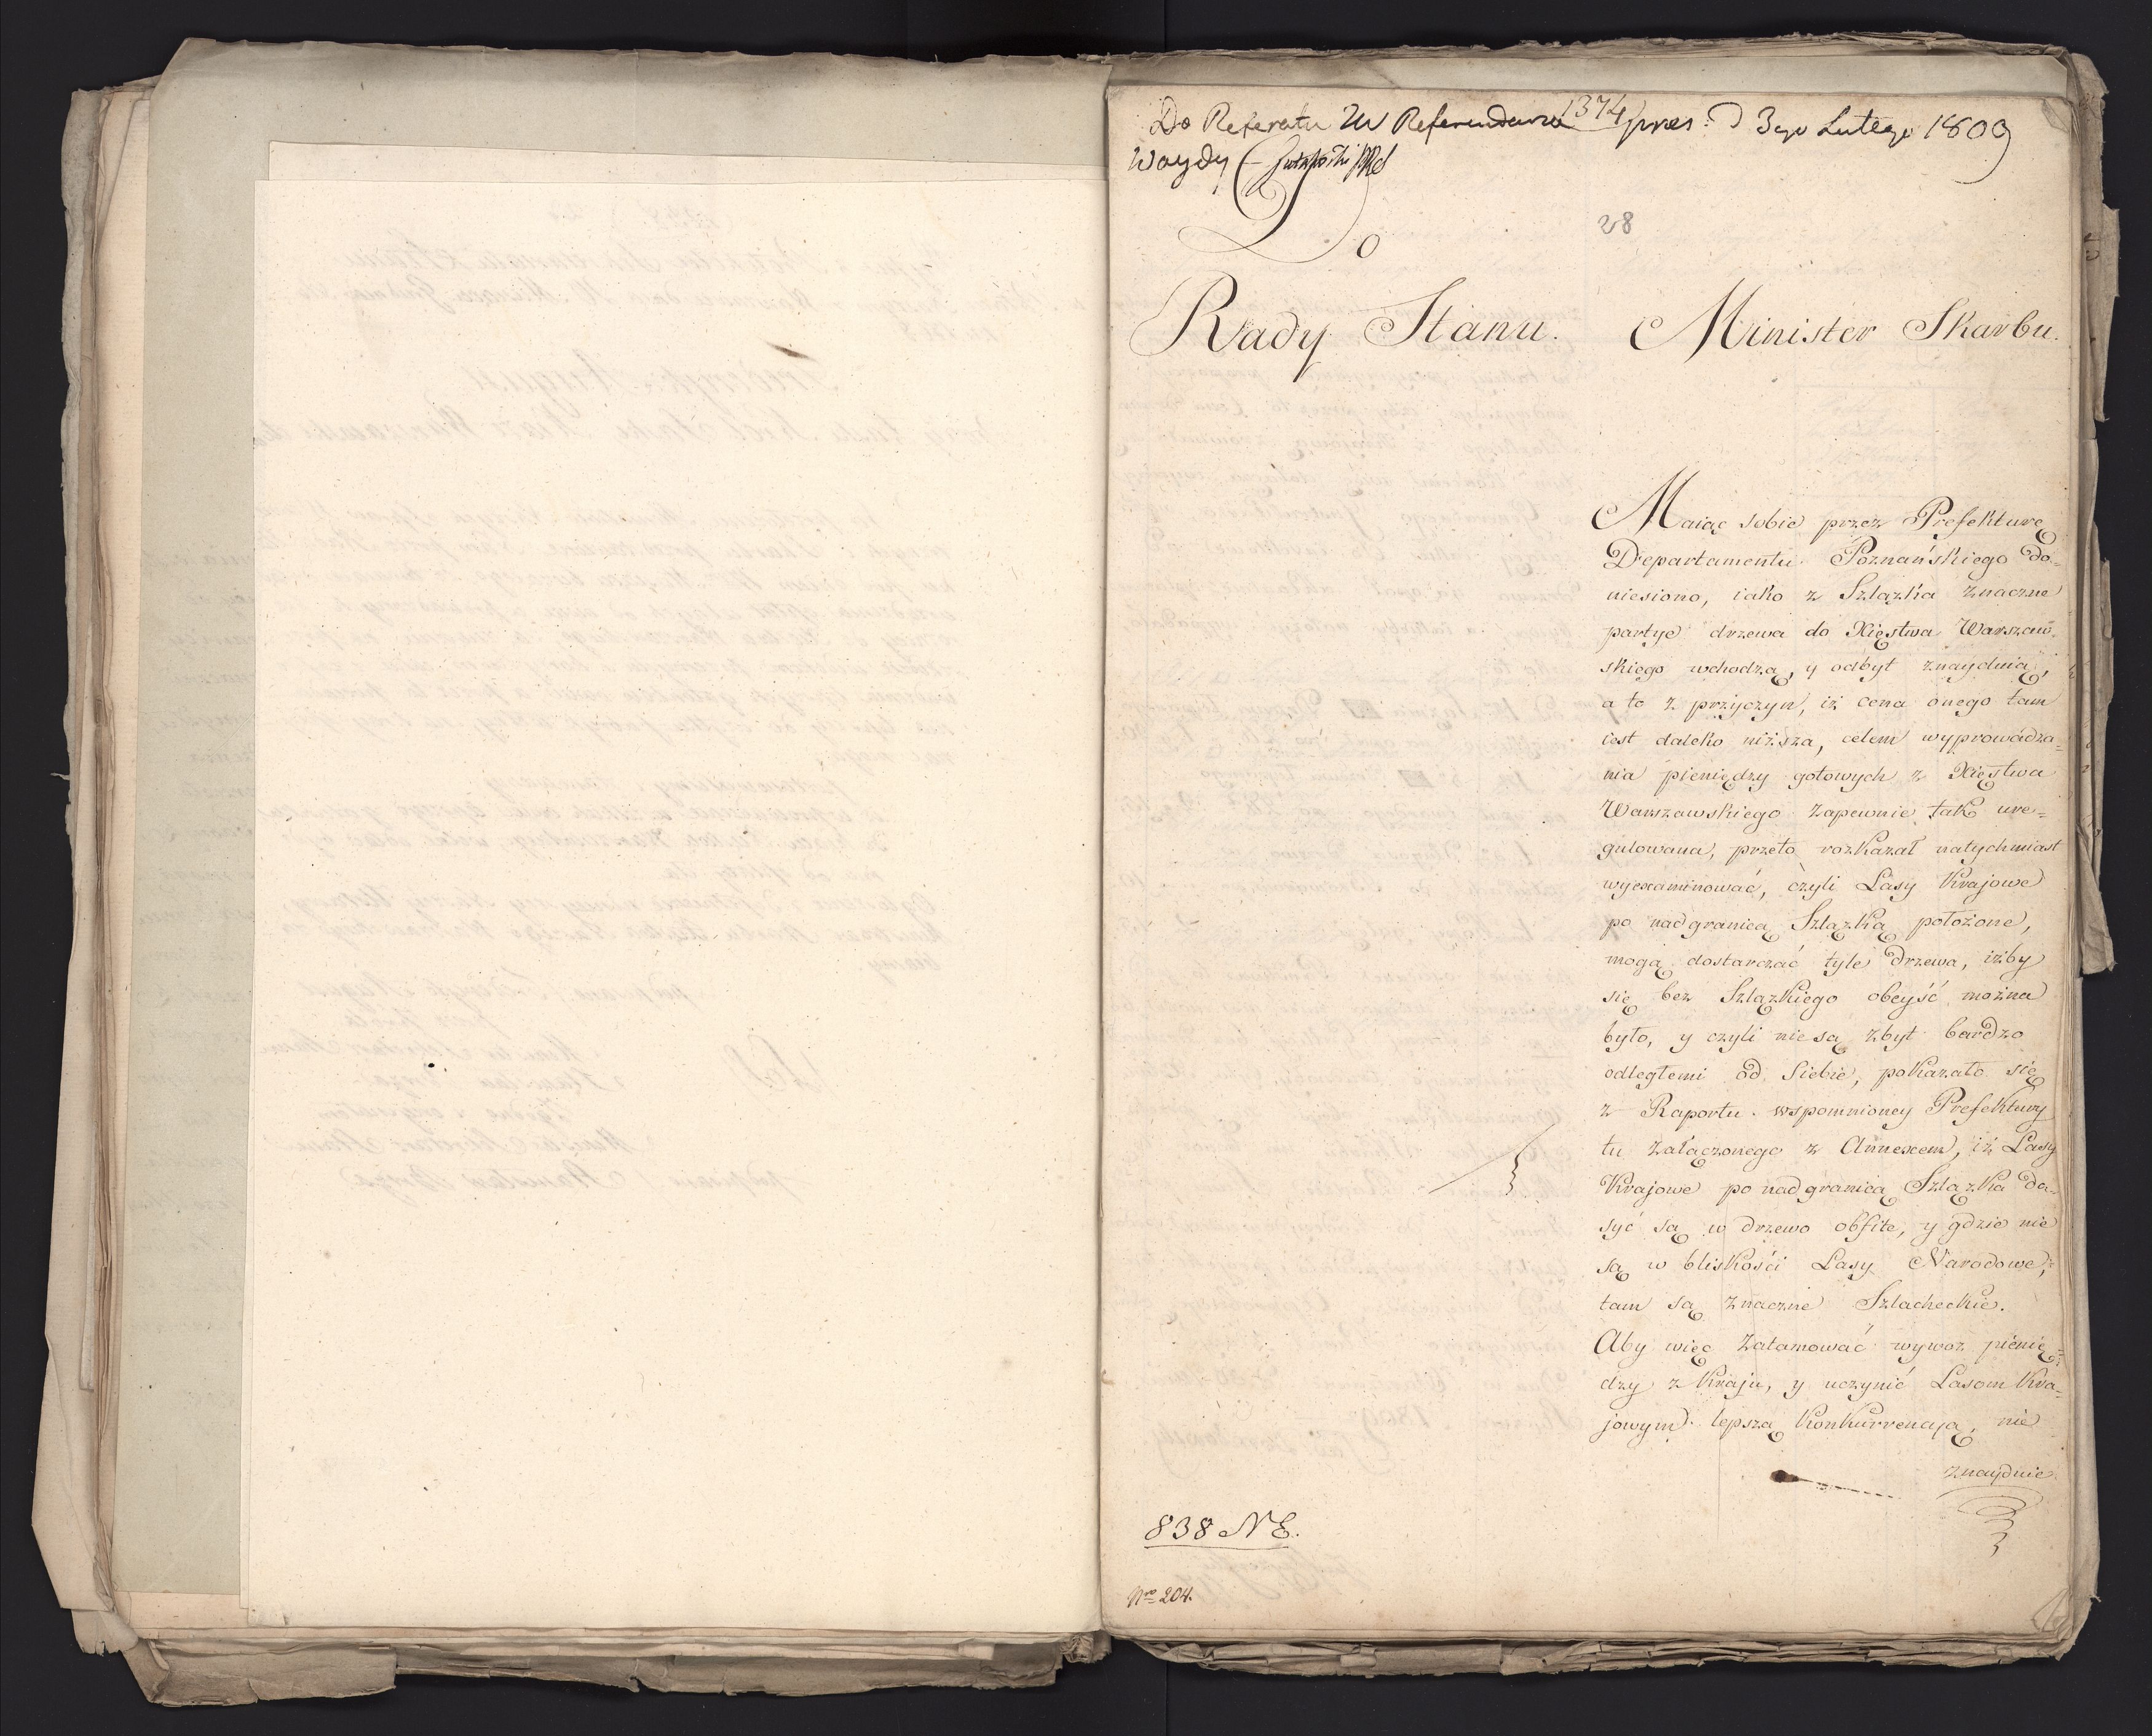 1374
Do Referatu W Referendarza pres: d 3go Lutego 1809
Woydy
28
Do
Rady Stanu.
Minister Skarbu.
Maiąc sobie przez Prefekturę
Departamentu Poznańskiego do=
niesiono, iako z Szlązka znaczne
partye drzewa do Xięstwa Warszaw=
skiego wchodzą, y odbyt znayduią,
a to z przyczyn, iż cena onego tam
iest daleko niższa, celem wyprowadza=
nia pieniędzy gotowych z Xięstwa
Warszawskiego zapewnie tak ure=
gulowana, przeto rozkazał natychmiast
wyexaminować, czyli Lasy Krajowe
po nad granicą Szlązką położone,
mogą dostarczać tyle drzewa, iżby
się bez Szlązkiego obeyść można
było, y czyli nie są zbyt bardzo
odległemi od siebie, pokazało się
z Raportu wspomnioney Prefektury
tu załączonego z Annexem, iż Lasy
Krajowe po nad granicą Szlązka do=
syć są w drzewo obfite, y gdzie nie
są w bliskości Lasy Narodowe,
tam są znaczne Szlacheckie.
Aby więc zatamować wywoz pienię=
dzy z Kraju, y uczynić Lasom Kra=
jowym lepszą Konkurrencyą, nie
znayduie
838 NE.
Nro 204.